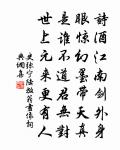 詩酒江南劍外身
眼驚幻墨帶天真
是誰不道君無對
世上元來更有人
陸放翁